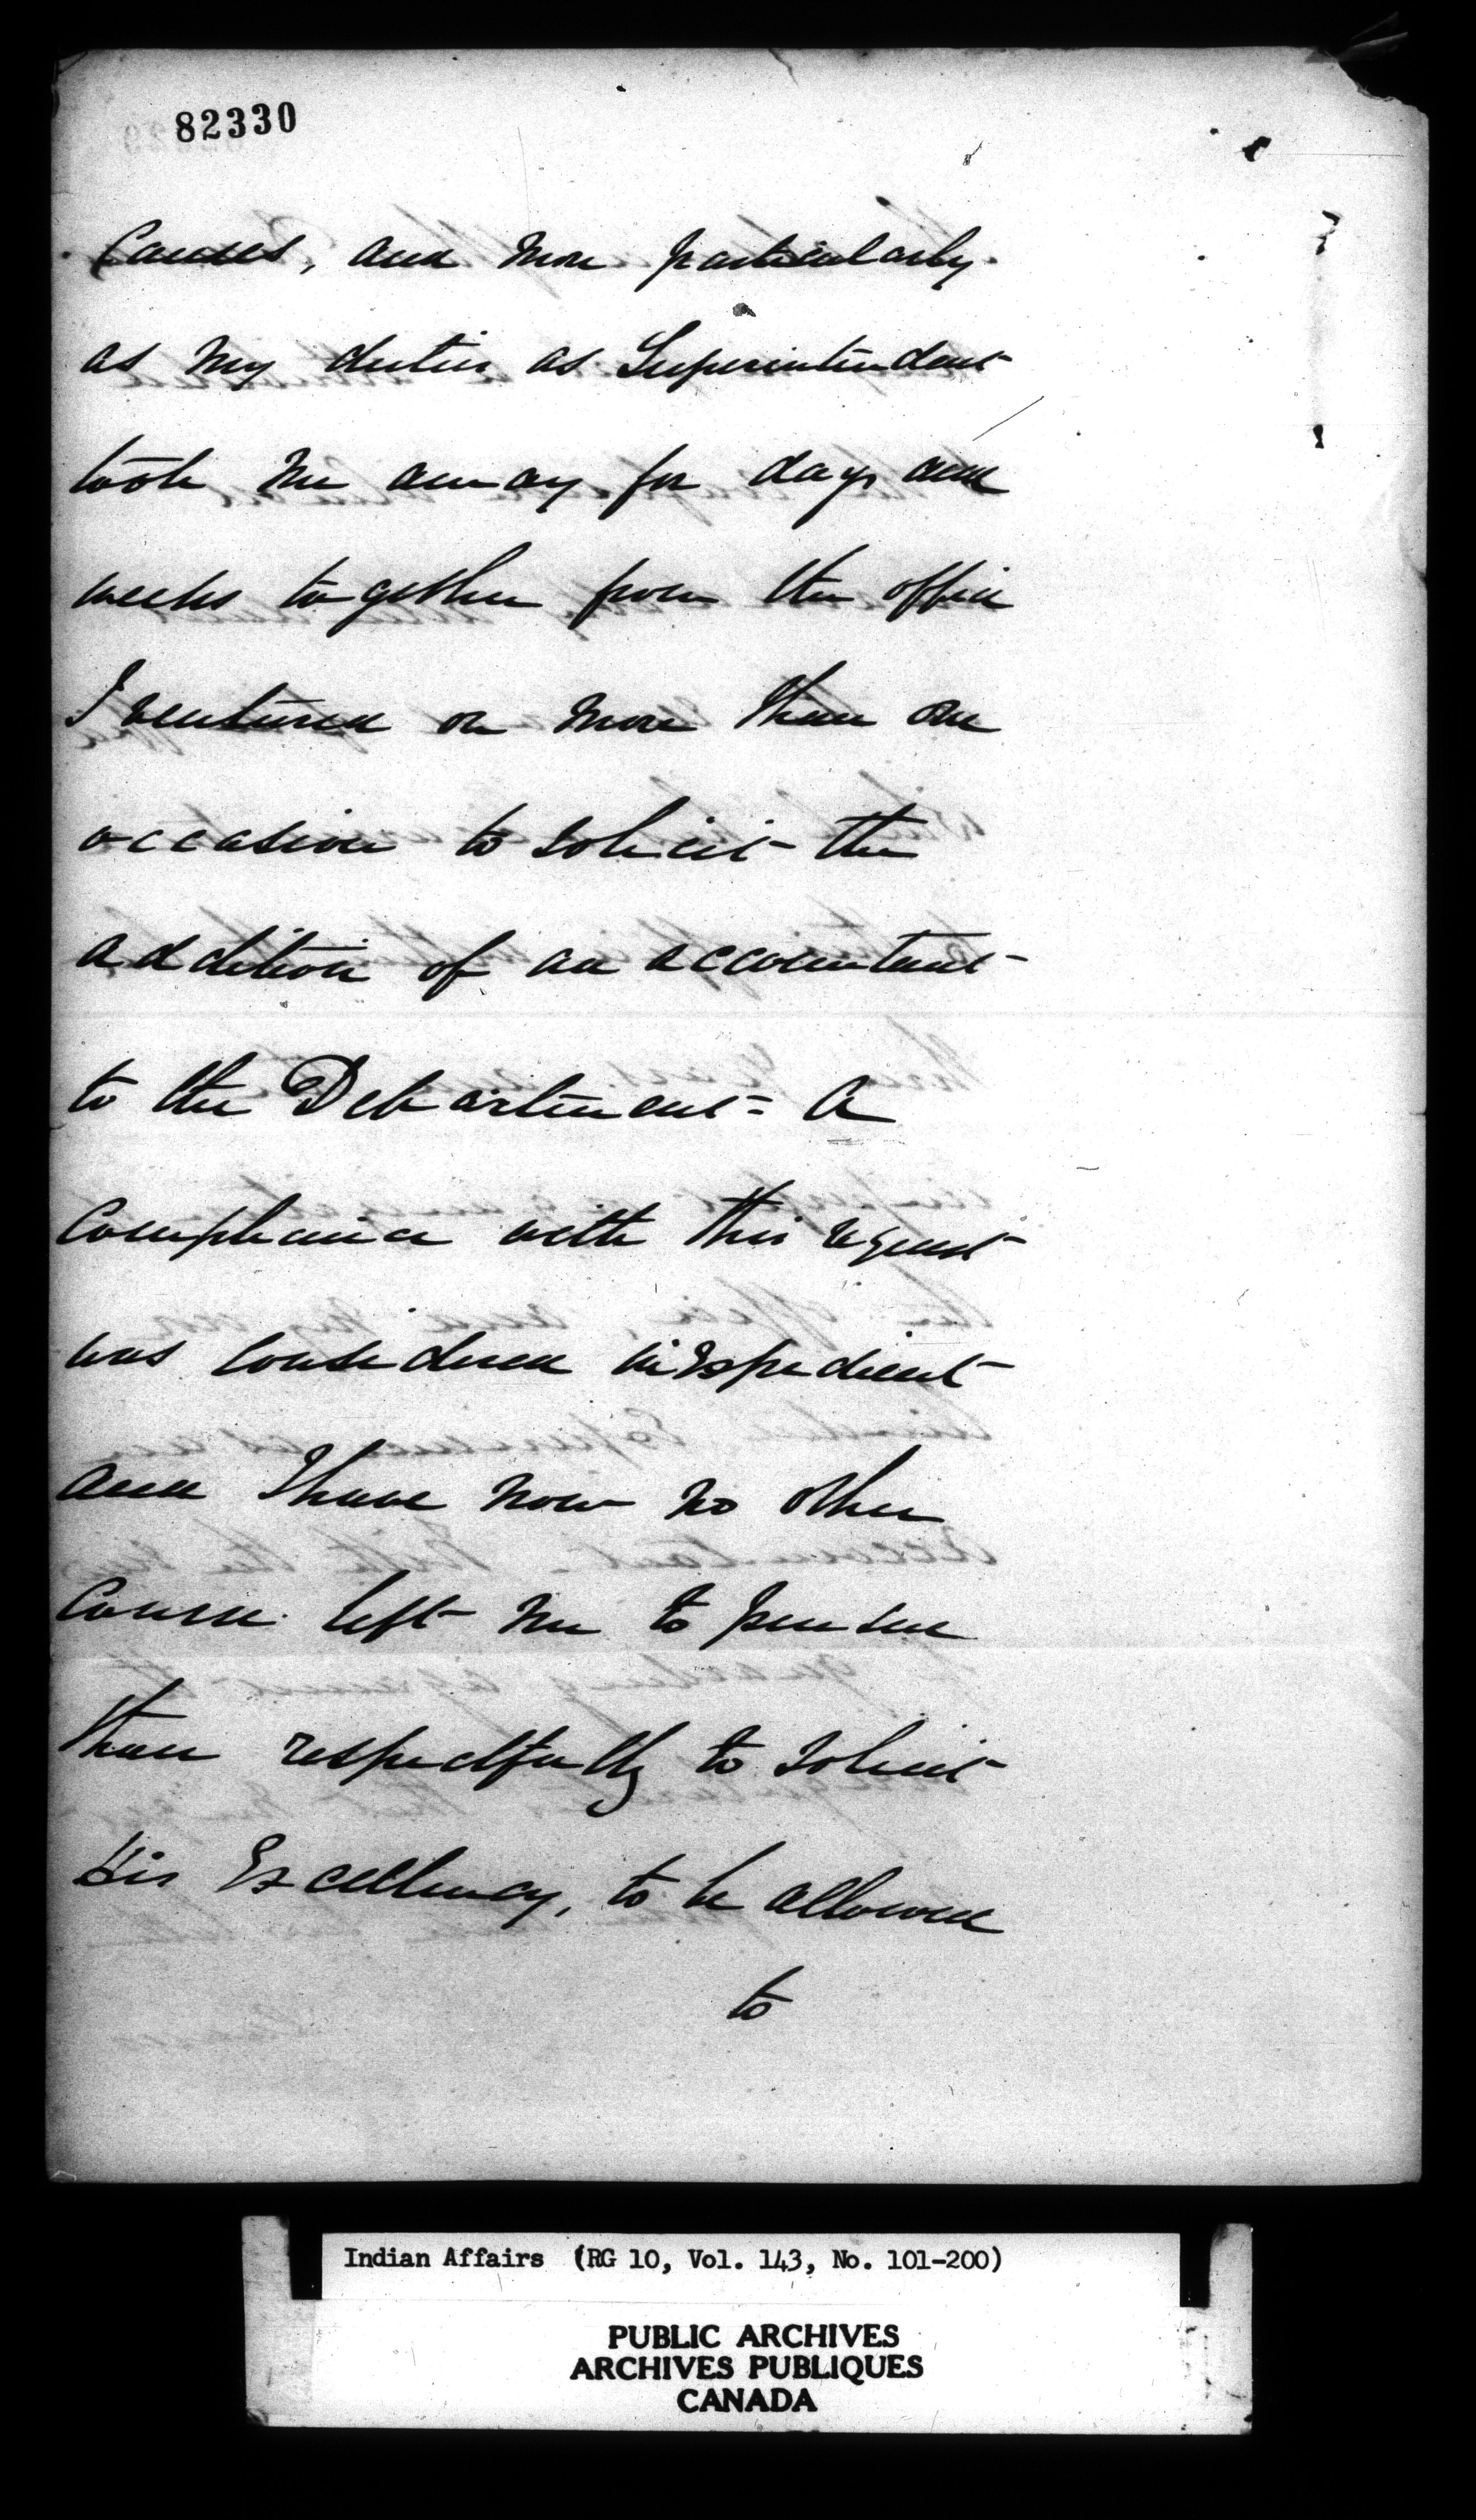 82330
Causes, and more particularly
as my duties as Superintendent
took me away for days and
weeks together from the office
I ventured on more than one
occasion to solicit the
addition of an accountant
to the Department = A
compliance with this request
was considered inexpedient
and I have now no other
course left me to pursue
than respectfully to solicit
His Excellency, to be allowed
to
Indian Affairs (RG 10, Vol. 143, No. 101-200)
PUBLIC ARCHIVES
ARCHIVES PUBLIQUES
CANADA